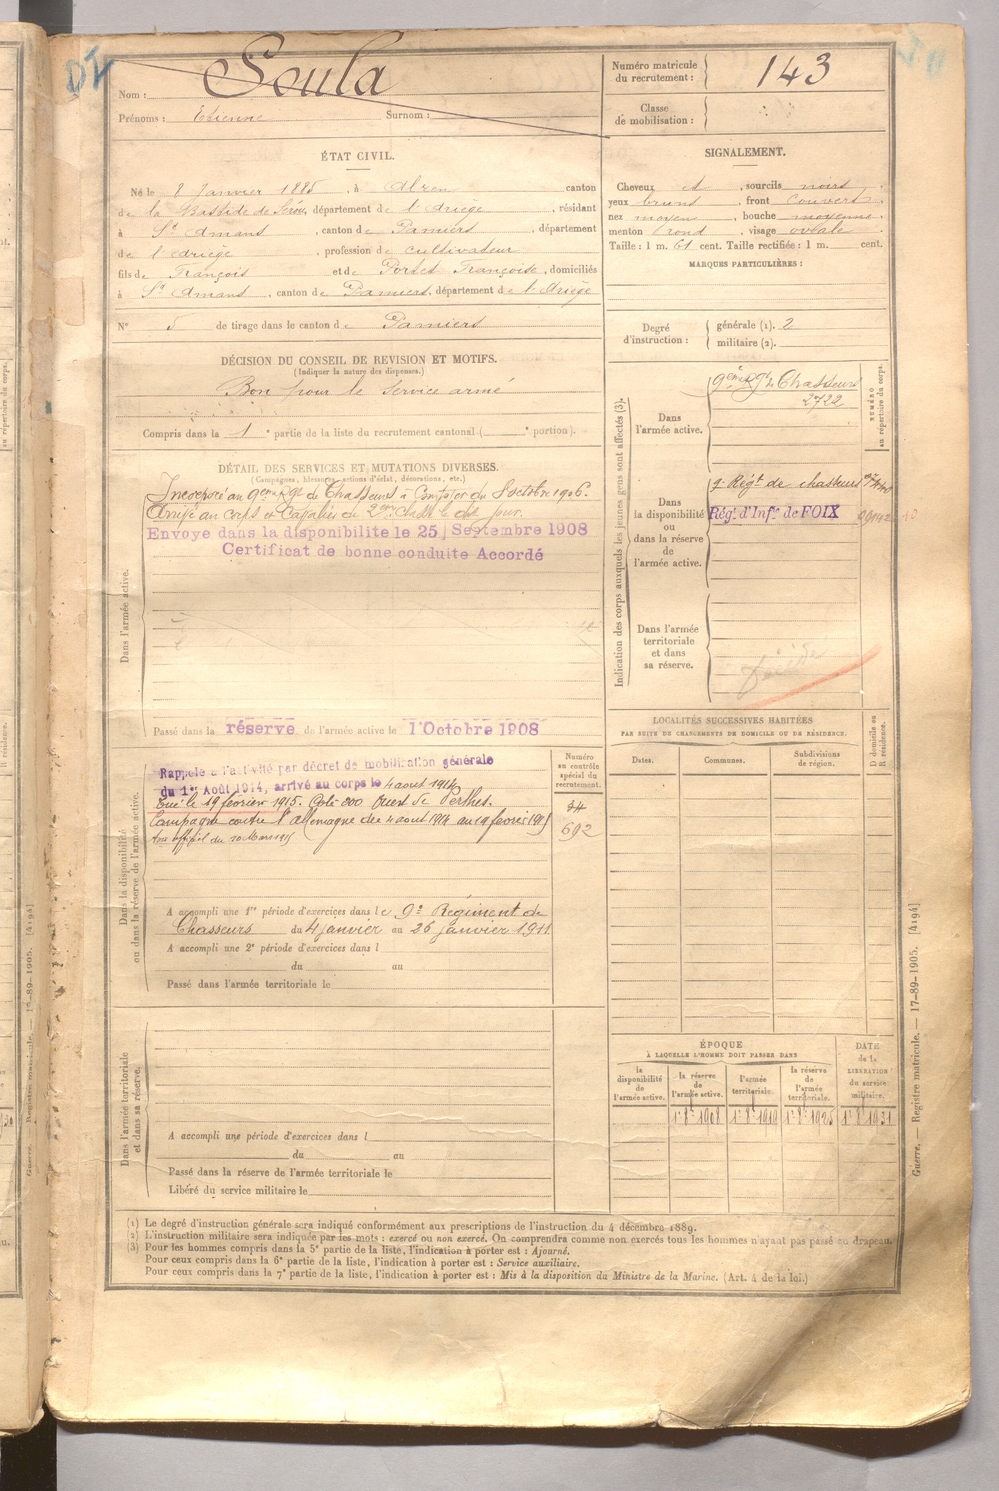 Nom : Soula
Prénoms : Etienne Surnom :
Numéro matricule du recrutement : 143
Classe de mobilisation :
ÉTAT CIVIL.
Né le 8 Janvier 1885, à Alzen canton
de la Bastide de Sérou, département de l'Ariège, résidant
à St Amans, canton de Pamiers, département
de l'Ariège, profession de cultivateur
fils de François et de Portet Françoise, domiciliés
à St Amans, canton de Pamiers, département de l'Ariège
N° 5 de tirage dans le canton de Pamiers
SIGNALEMENT.
Cheveux et, sourcils noirs.
yeux bruns, front couvert,
nez moyen, bouche moyenne,
menton rond, visage ovale.
Taille : 1 m. 61 cent. Taille rectifiée : 1 m. cent.
MARQUES PARTICULIÈRES :
Degré d'instruction : générale (1). 2
militaire (2).
DÉCISION DU CONSEIL DE REVISION ET MOTIFS.
(Indiquer la nature des dispenses.)
Bon pour le service armé
Compris dans la 1e partie de la liste du recrutement cantonal ( e portion).
DÉTAIL DES SERVICES ET MUTATIONS DIVERSES.
(Campagnes, blessures, actions d'éclat, décorations, etc.)
Dans l'armée active.
Incorporé au 9ème Rgt de Chasseurs à Compter du 8 octobre 1906.
Arrivé au corps et Cavalier de 2ème classe le dit jour.
Envoye dans la disponibilite le 25 Septembre 1908
Certificat de bonne conduite Accordé
Passé dans la réserve de l'armée active le 1 Octobre 1908
Indication des corps auxquels les jeunes gens sont affectés (3).
NUMÉRO au répertoire du corps.
Dans l'armée active.
9ème Rgt de Chasseurs
2722
Dans la disponibilité ou dans la réserve de l'armée active.
9e Régt de chasseurs
Régt d'Infie de FOIX
Dans l'armée territoriale et dans sa réserve.
LOCALITÉS SUCCESSIVES HABITÉES
PAR SUITE DE CHANGEMENTS DE DOMICILE OU DE RÉSIDENCE.
Dates. Communes. Subdivisions de région. D domicile ou R résidence.
Dans la disponibilité ou dans la réserve de l'armée active.
Numéro au contrôle spécial du recrutement.
692
Rappelé à l'activité par décret de mobilisation générale
du 1er Août 1914, arrivé au corps le 4 aout 1914
Tué le 19 février 1915. Cote 200 Ouest de Perthes.
Campagne contre l'Allemagne du 4 aout 1914 au 19 février 1915
Avis officiel du 10 Mars 1915
A accompli une 1re période d'exercices dans le 9e Régiment de
Chasseurs du 4 janvier au 26 janvier 1911
A accompli une 2e période d'exercices dans l
du au
Passé dans l'armée territoriale le
Dans l'armée territoriale et dans sa réserve.
A accompli une période d'exercices dans l
du au
Passé dans la réserve de l'armée territoriale le
Libéré du service militaire le
ÉPOQUE
À LAQUELLE L'HOMME DOIT PASSER DANS
la disponibilité de l'armée active. la réserve de l'armée active. l'armée territoriale. la réserve de l'armée territoriale. DATE de la LIBÉRATION du service militaire.
(1) Le degré d'instruction générale sera indiqué conformément aux prescriptions de l'instruction du 4 décembre 1889.
(2) L'instruction militaire sera indiquée par les mots : exercé ou non exercé. On comprendra comme non exercés tous les hommes n'ayant pas passé au drapeau.
(3) Pour les hommes compris dans la 5e partie de la liste, l'indication à porter est : Ajourné.
Pour ceux compris dans la 6e partie de la liste, l'indication à porter est : Service auxiliaire.
Pour ceux compris dans la 7e partie de la liste, l'indication à porter est : Mis à la disposition du Ministre de la Marine. (Art. 4 de la loi.)
Guerre. — Registre matricule. — 17-89-1905. [4194]